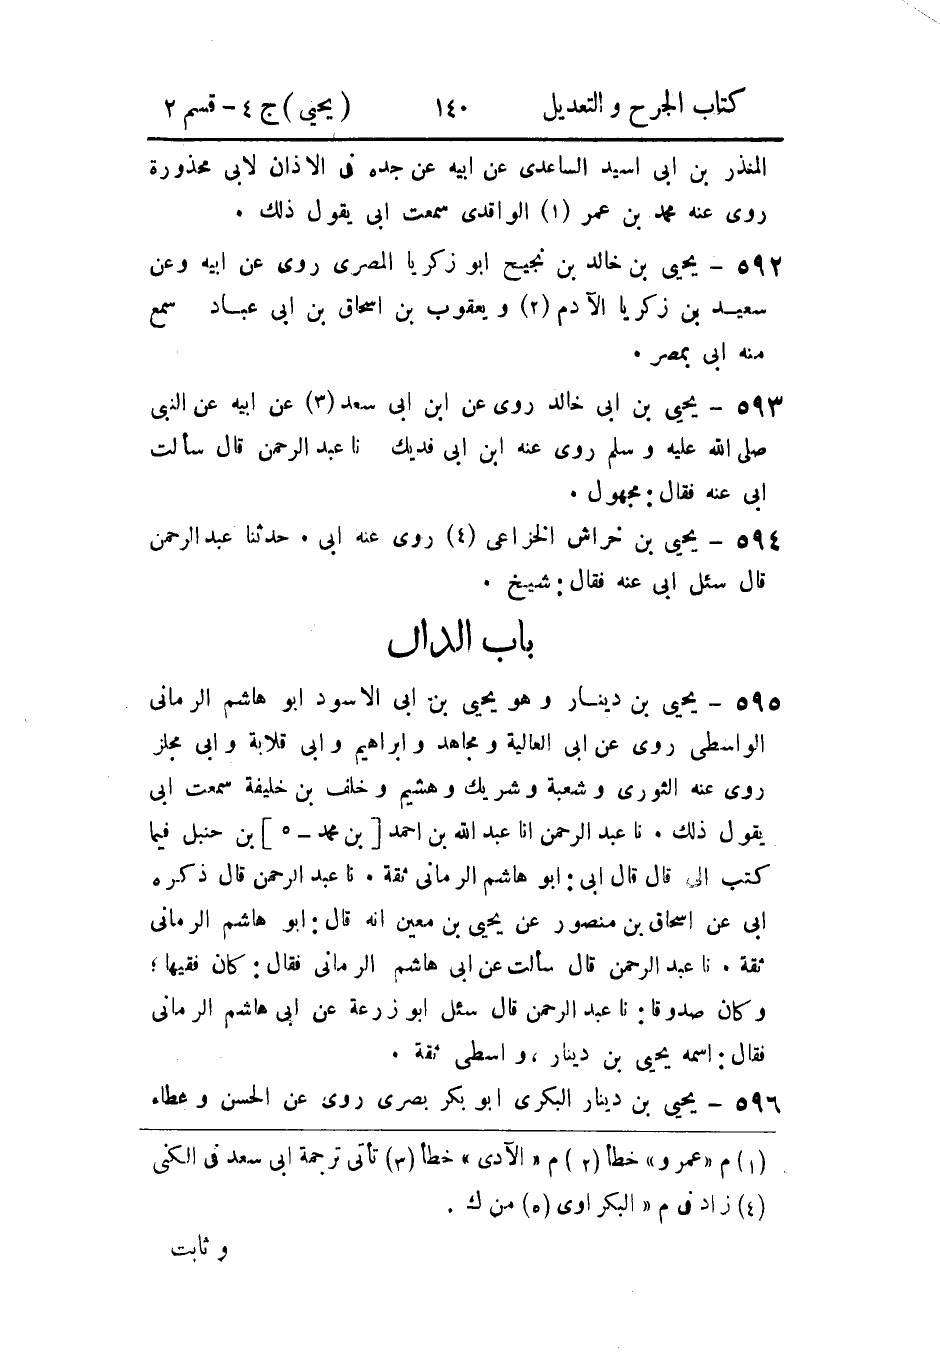 كتاب الجرح و التعديل ١٤٠ ( يحيى ) ج ٤ - قسم ٢
المنذر بن ابى اسيد الساعدى عن ابيه عن جده فى الاذان لابى محذورة
روى عنه محمد بن عمر (١) الواقدى سمعت ابى يقول ذلك ٠
٥٩٢ - يحيى بن خالد بن نجيح ابو زكريا المصرى روى عن ابيه وعن
سعيد بن زكريا الآدم (٢) و يعقوب بن اسحاق بن ابى عباد سمع
منه ابى بمصر ٠
٥٩٣ - يحيى بن ابى خالد روى عن ابن ابى سعد (٣) عن ابيه عن النبى
صلى الله عليه و سلم روى عنه ابن ابى فديك نا عبد الرحمن قال سألت
ابى عنه فقال : مجهول ٠
٥٩٤ - يحيى بن خراش الخزاعى (٤) روى عنه ابى ٠ حدثنا عبد الرحمن
قال سئل ابى عنه فقال : شيخ ٠
باب الدال
٥٩٥ - يحيى بن دينار و هو يحيى بن ابى الاسود ابو هاشم الرمانى
الواسطى روى عن ابى العالية و مجاهد و ابراهيم و ابى قلابة و ابى مجلز
روى عنه الثورى و شعبة و شريك و هشيم و خلف بن خليفة سمعت ابى
يقول ذلك ٠ نا عبد الرحمن انا عبد الله بن احمد [ بن محمد - ٥ ] بن حنبل فيما
كتب الى قال قال ابى : ابو هاشم الرمانى ثقة ٠ نا عبد الرحمن قال ذكره
ابى عن اسحاق بن منصور عن يحيى بن معين انه قال : ابو هاشم الرمانى
ثقة ٠ نا عبد الرحمن قال سألت عن ابى هاشم الرمانى فقال : كان فقيها ؛
و كان صدوقا : نا عبد الرحمن قال سئل ابو زرعة عن ابى هاشم الرمانى
فقال : اسمه يحيى بن دينار ، و اسطى ثقة ٠
٥٩٦ - يحيى بن دينار البكرى ابو بكر بصرى روى عن الحسن و عطاء
(١) م «عمرو» خطأ (٢) م «الآدى» خطأ (٣) تأتى ترجمة ابى سعد فى الكنى
(٤) زاد فى م «البكراوى (٥) من ك .
و ثابت